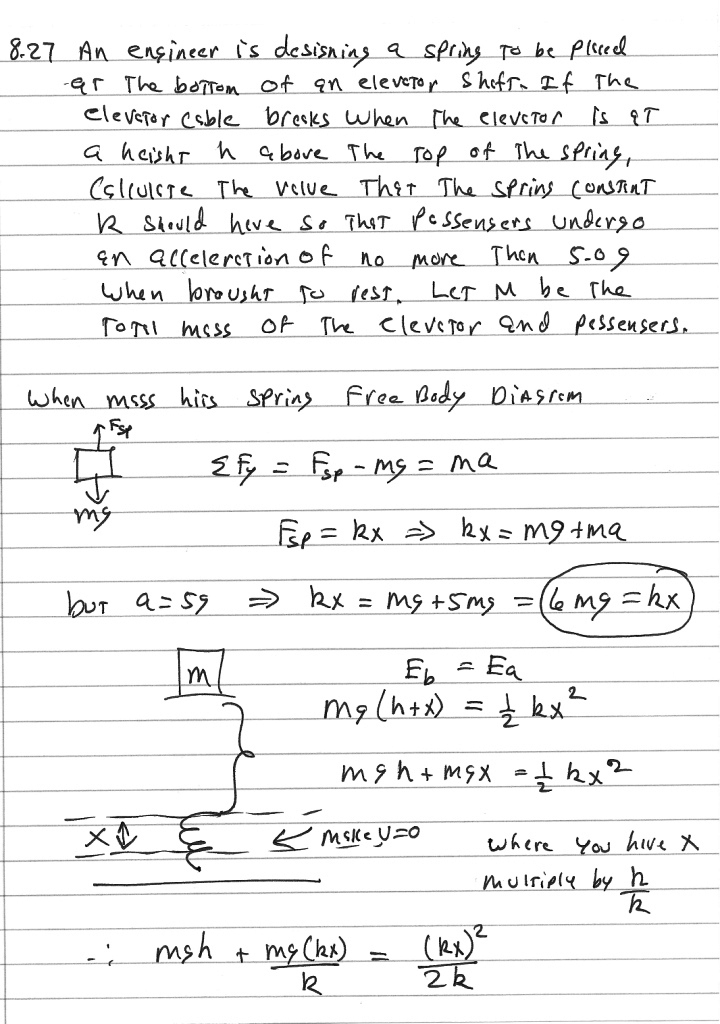 8.27 An engineer is designing a spring to be placed
at the bottom of an elevator shaft. If the
elevator cable breaks when the elevator is at
a height h above the top of the spring,
Calculate the value that the spring constant
k should have so that passengers undergo
an acceleration of no more than 5.0 g
when brought to rest. Let M be the
total mass of the elevator and passengers.
When mass hits spring Free Body Diagram
Fsp
mg
Σ Fy = Fsp - mg = ma
Fsp = kx ⇒ kx = mg + ma
but a = 5g ⇒ kx = mg + 5mg = 6 mg = kx
m
Eb = Ea
mg (h+x) = 1/2 kx²
mgh + mgx = 1/2 kx²
x
← make y=0
where you have x
multiply by k/k
∴ mgh + mg(kx)/k = (kx)²/2k